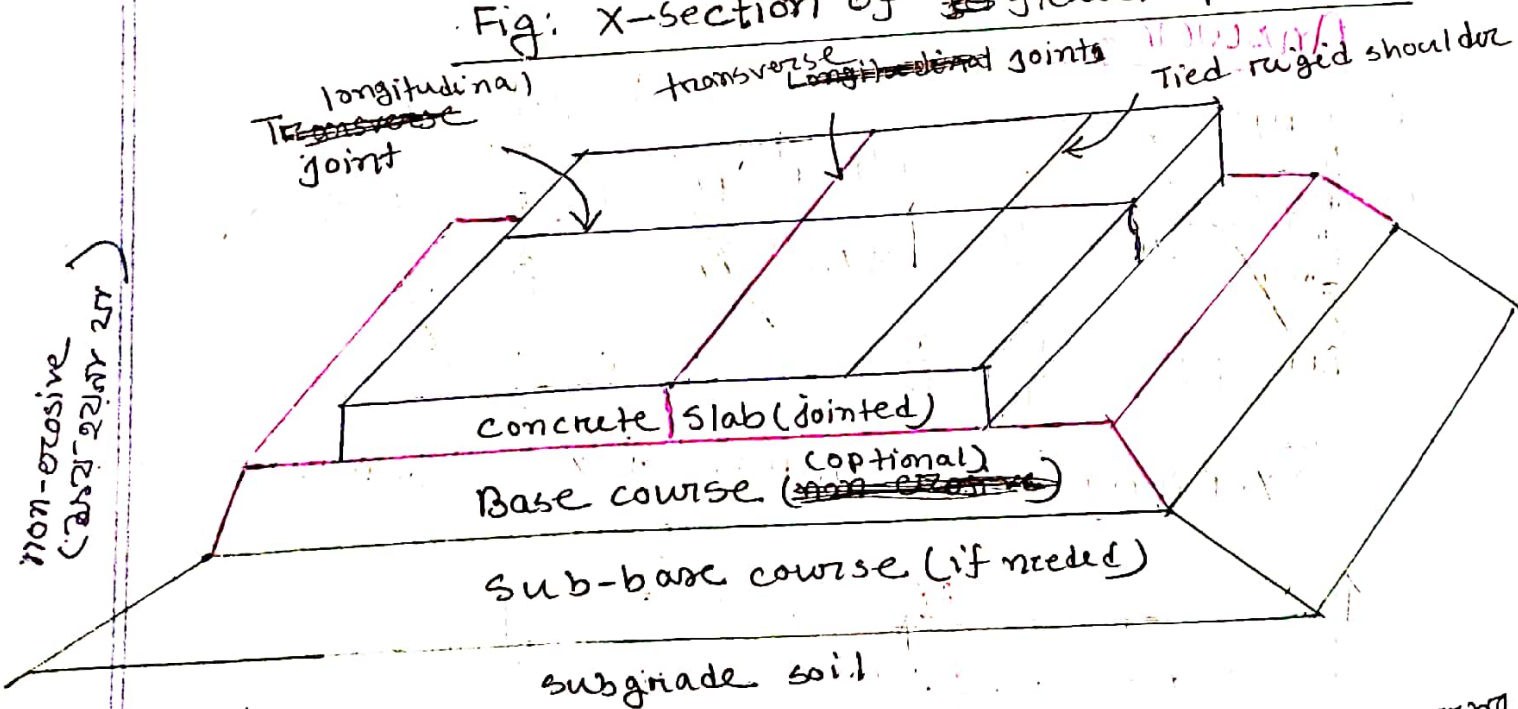 Fig: X-section of
longitudinal
joint
transverse joints
Tied rigid shoulder
non-erosive
concrete slab (jointed)
(optional)
Base course
sub-base course (if needed)
subgrade soil